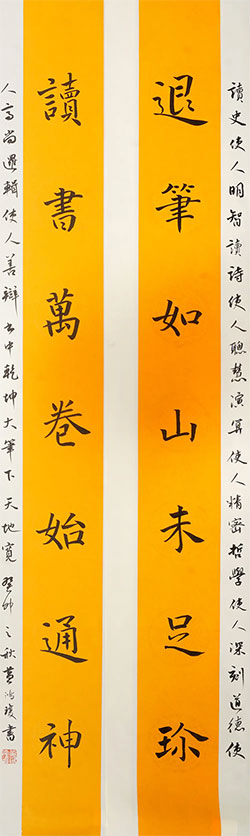 讀史使人明智讀詩使人聰慧演算使人精密哲學使人深刻道德使
退筆如山未足珍
讀書萬卷始通神
人高尚邏輯使人善辯书中乾坤大筆下天地寬癸卯之秋黄書